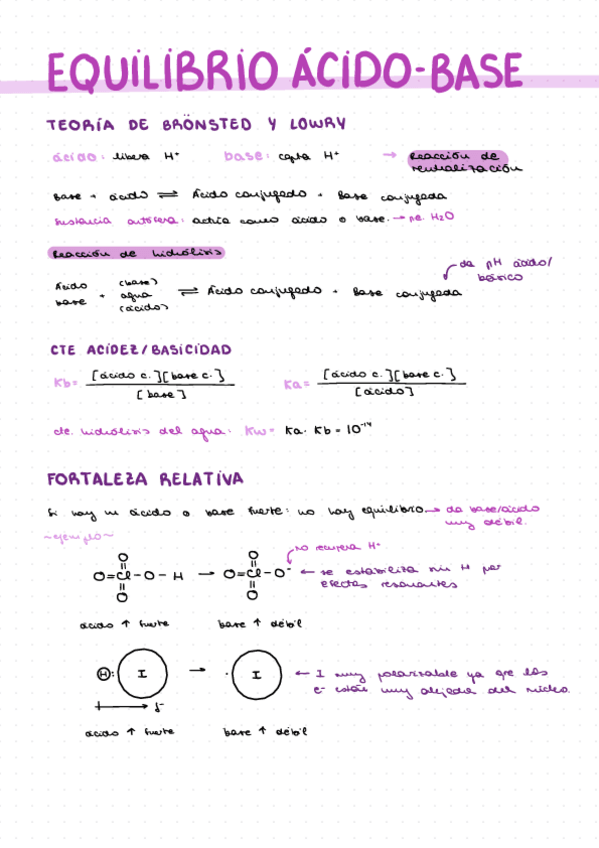 EQUILIBRIO ÁCIDO-BASE
TEORÍA DE BRÖNSTED Y LOWRY
ácido: libera H⁺ base: capta H⁺ → Reacción de neutralización
Base + ácido ⇌ Ácido conjugado + Base conjugada
Sustancia anfótera: actúa como ácido o base. → pe. H₂O
Reacción de hidrólisis
→ da pH ácido/básico
Ácido base + (base) agua (ácido) ⇌ Ácido conjugado + Base conjugada
CTE ACIDEZ/BASICIDAD
Kb = [ácido c.][base c.] / [base] Ka = [ácido c.][base c.] / [ácido]
cte. hidrólisis del agua: Kw = Ka · Kb = 10⁻¹⁴
FORTALEZA RELATIVA
Si hay un ácido o base fuerte: no hay equilibrio → da base/ácido muy débil.
~ejemplo~
no recupera H⁺
O=Cl-O-H → O=Cl-O⁻ ← se estabiliza sin H por efectos resonantes
O O
O O
ácido ↑ fuerte base ↑ débil
H: I → I ← I muy polarizable ya que los e⁻ están muy alejados del núcleo.
δ⁻
ácido ↑ fuerte base ↑ débil